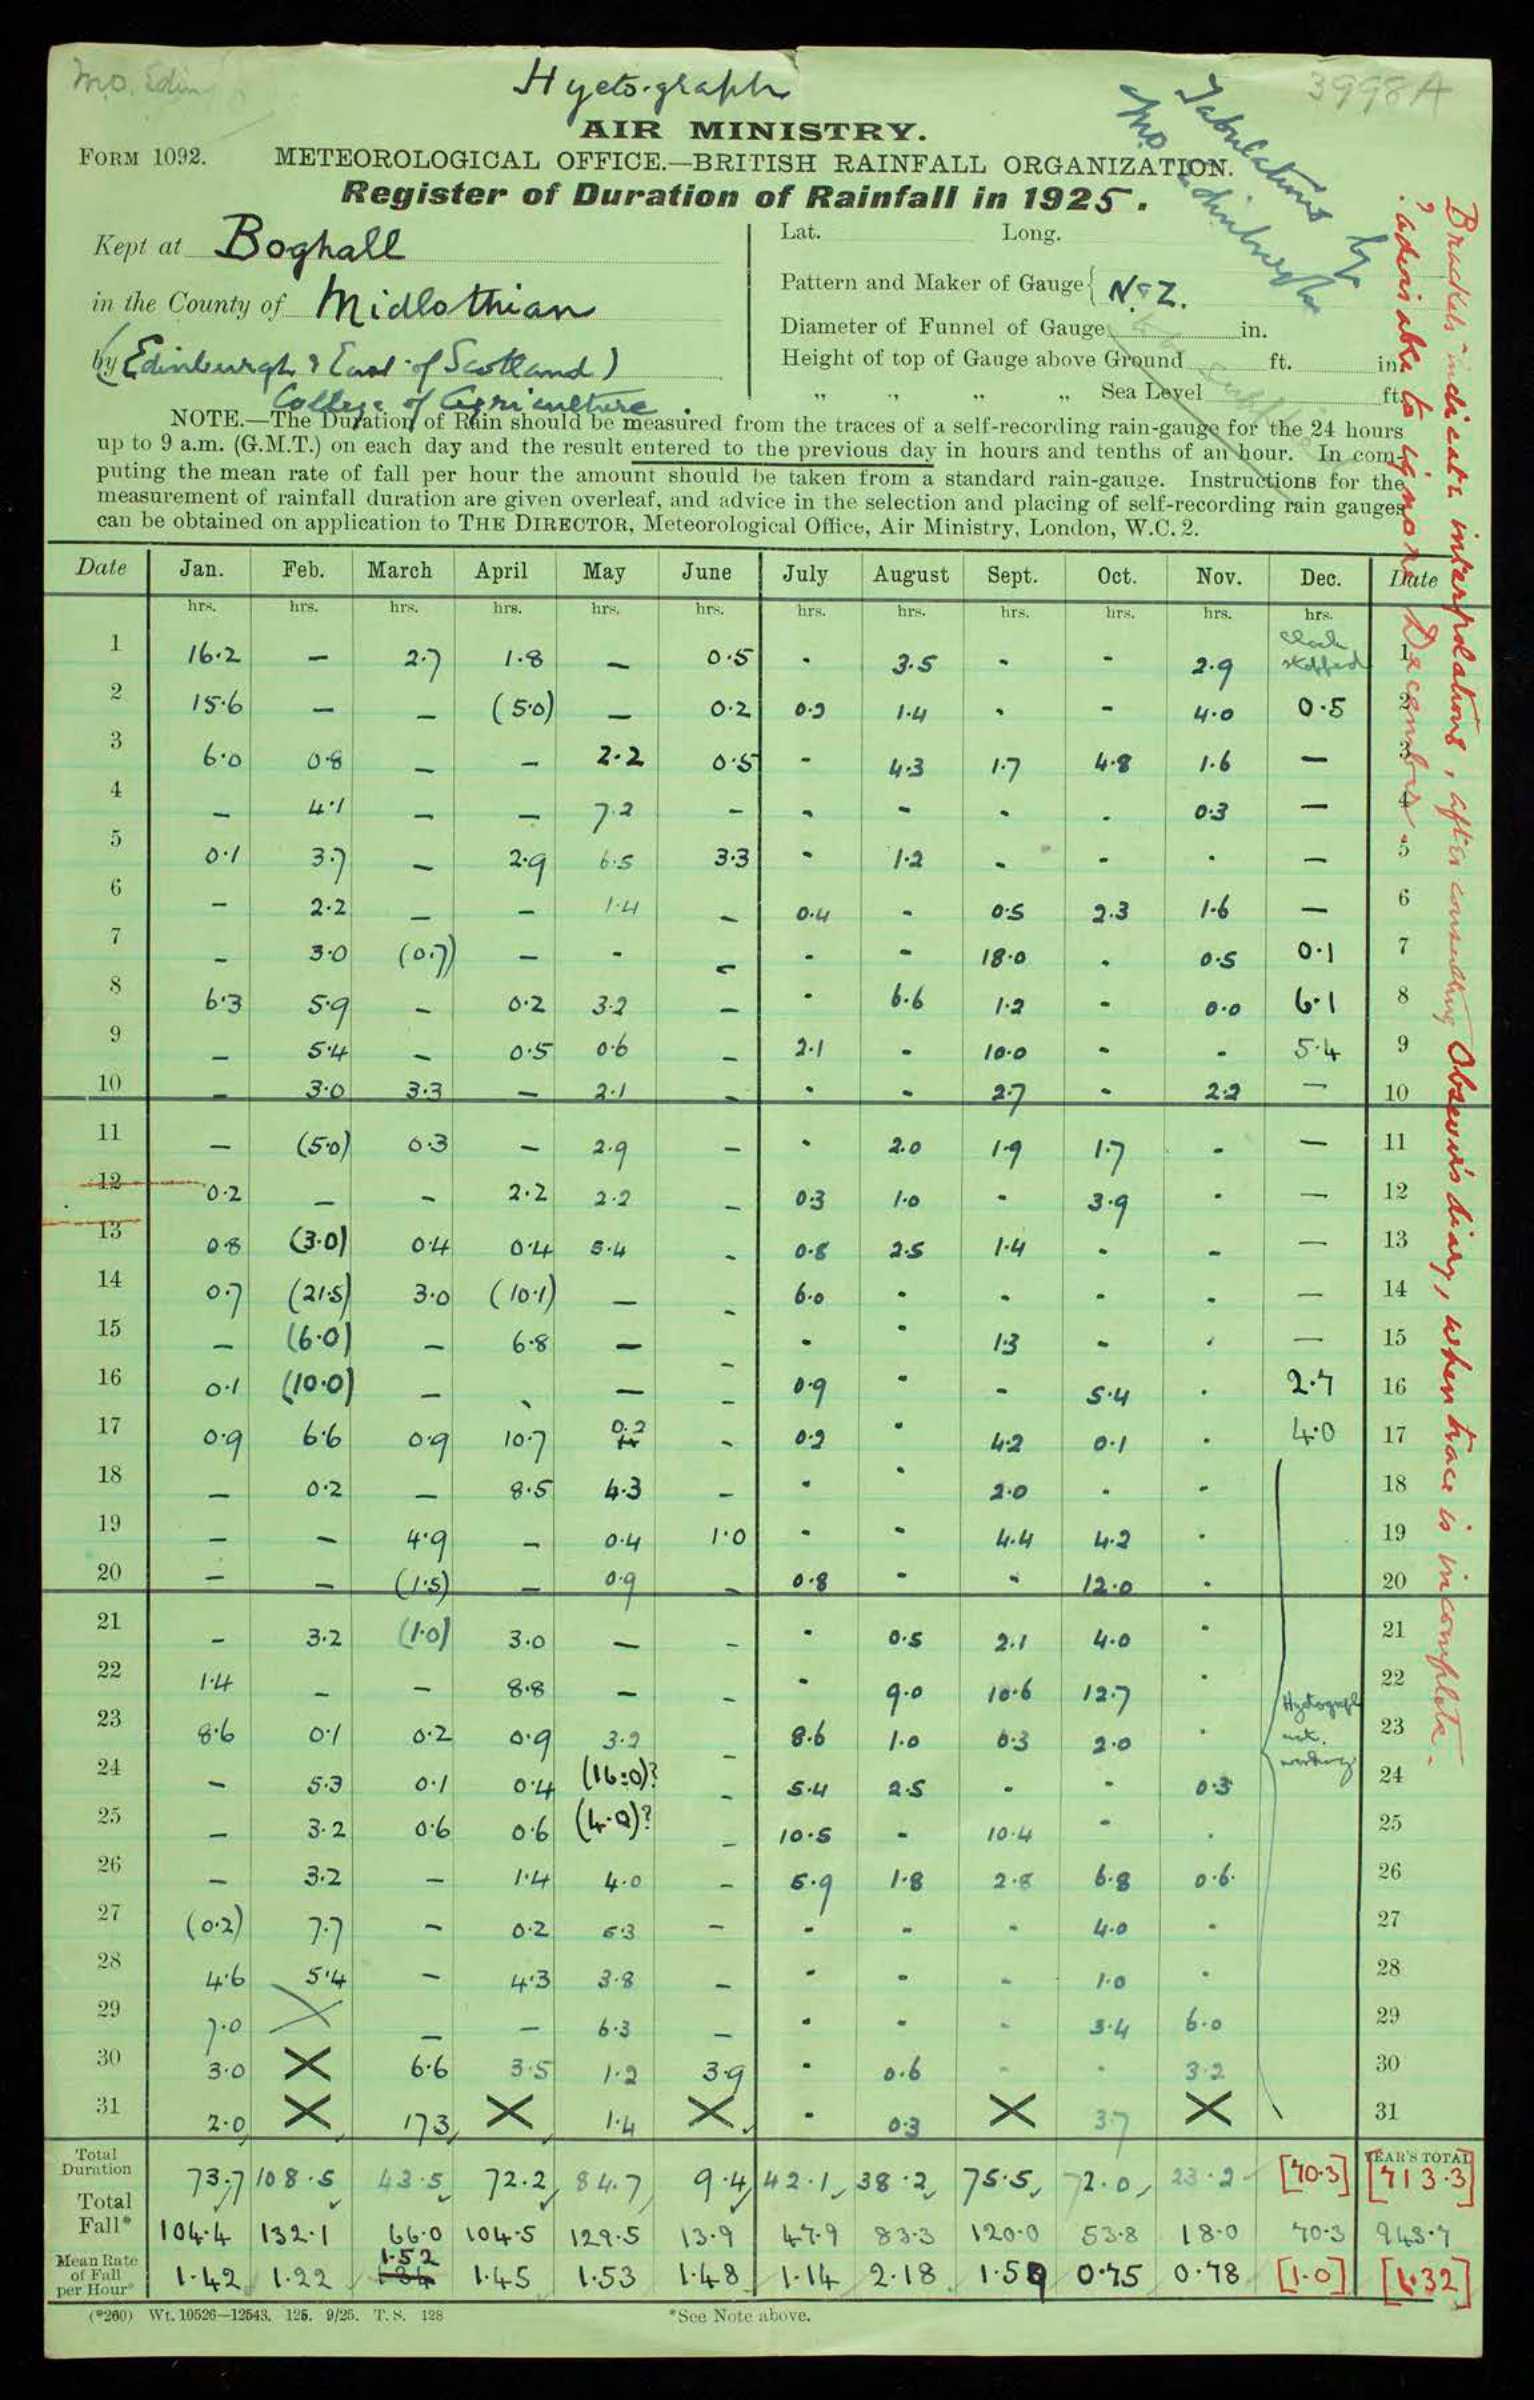 Hyetograph
3998A
AIR MINISTRY.
FORM 1092. METEOROLOGICAL OFFICE.—BRITISH RAINFALL ORGANIZATION.
Register of Duration of Rainfall in 1925.
Tabulations by
M.O. Edinburgh
Kept at Boghall
in the County of Midlothian
by (Edinburgh & East of Scotland)
College of Agriculture.
Lat. Long.
Pattern and Maker of Gauge { No 2.
Diameter of Funnel of Gauge in.
Height of top of Gauge above Ground ft. in.
" " " " Sea Level ft.
NOTE.—The Duration of Rain should be measured from the traces of a self-recording rain-gauge for the 24 hours
up to 9 a.m. (G.M.T.) on each day and the result entered to the previous day in hours and tenths of an hour. In com-
puting the mean rate of fall per hour the amount should be taken from a standard rain-gauge. Instructions for the
measurement of rainfall duration are given overleaf, and advice in the selection and placing of self-recording rain gauges
can be obtained on application to THE DIRECTOR, Meteorological Office, Air Ministry, London, W.C. 2.
Date Jan. Feb. March April May June July August Sept. Oct. Nov. Dec. Date
hrs. hrs. hrs. hrs. hrs. hrs. hrs. hrs. hrs. hrs. hrs. hrs.
1 16.2 — 2.7 1.8 — 0.5 - 3.5 - - 2.9 Clock stopped 1
2 15.6 — — (5.0) — 0.2 0.2 1.4 - - 4.0 0.5 2
3 6.0 0.8 — — 2.2 0.5 - 4.3 1.7 4.8 1.6 — 3
4 — 4.1 — — 7.2 - - - - - 0.3 — 4
5 0.1 3.7 — 2.9 6.5 3.3 - 1.2 - - - — 5
6 - 2.2 — — 1.4 — 0.4 - 0.5 2.3 1.6 — 6
7 — 3.0 (0.7) — - — - - 18.0 - 0.5 0.1 7
8 6.3 5.9 — 0.2 3.2 — - 6.6 1.2 - 0.0 6.1 8
9 — 5.4 — 0.5 0.6 — 2.1 - 10.0 - - 5.4 9
10 — 3.0 3.3 — 2.1 — - - 2.7 - 2.2 — 10
11 — (5.0) 0.3 — 2.9 — - 2.0 1.9 1.7 - — 11
12 0.2 — — 2.2 2.2 — 0.3 1.0 - 3.9 - — 12
13 0.8 (3.0) 0.4 0.4 5.4 - 0.8 2.5 1.4 - - — 13
14 0.7 (21.5) 3.0 (10.1) — - 6.0 - - - - — 14
15 — (6.0) — 6.8 — - - - 1.3 - - — 15
16 0.1 (10.0) — - — - 0.9 - - 5.4 - 2.7 16
17 0.9 6.6 0.9 10.7 0.2 - 0.2 - 4.2 0.1 - 4.0 17
18 — 0.2 — 8.5 4.3 — - - 2.0 - - 18
19 — — 4.9 — 0.4 1.0 - - 4.4 4.2 - 19
20 — — (1.5) — 0.9 — 0.8 - - 12.0 - 20
21 — 3.2 (1.0) 3.0 — — - 0.5 2.1 4.0 - 21
22 1.4 — — 8.8 — — - 9.0 10.6 12.7 - Hyetograph 22
23 8.6 0.1 0.2 0.9 3.2 — 8.6 1.0 0.3 2.0 - not 23
24 — 5.3 0.1 0.4 (16.0)? — 5.4 2.5 - - 0.3 working 24
25 — 3.2 0.6 0.6 (4.0)? — 10.5 - 10.4 - - 25
26 — 3.2 — 1.4 4.0 — 5.9 1.8 2.8 6.8 0.6 26
27 (0.2) 7.7 — 0.2 5.3 — - - - 4.0 - 27
28 4.6 5.4 — 4.3 3.8 — - - - 1.0 - 28
29 7.0 X — — 6.3 — - - - 3.4 6.0 29
30 3.0 X 6.6 3.5 1.2 3.9 - 0.6 - - 3.2 30
31 2.0 X 17.3 X 1.4 X - 0.3 X 3.7 X 31
Total Duration 73.7 108.5 43.5 72.2 84.7 9.4 42.1 38.2 75.5 72.0 23.2 [70.3] YEAR'S TOTAL [713.3]
Total Fall* 104.4 132.1 66.0 104.5 129.5 13.9 47.9 83.3 120.0 53.8 18.0 70.3 943.7
Mean Rate of Fall per Hour* 1.42 1.22 1.52 1.45 1.53 1.48 1.14 2.18 1.59 0.75 0.78 [1.0] [1.32]
(*260) Wt. 10526—12543. 125. 9/25. T.S. 128 *See Note above.
Brackets indicate interpolations, after consulting Observer's diary, when trace is incomplete.
? advisable to ignore December.